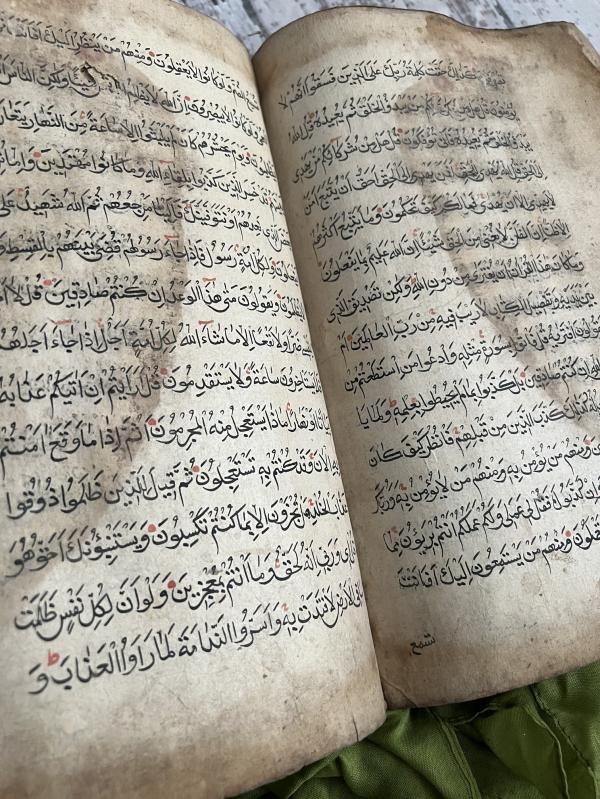 تصرفون كذلك حقت كلمة ربك على الذين فسقوا انهم لا
يؤمنون قل هل من شركائكم من يبدؤ الخلق ثم يعيده قل الله
يبدؤ الخلق ثم يعيده فانى تؤفكون قل هل من شركائكم من يهدي
الى الحق قل الله يهدي للحق افمن يهدي الى الحق احق ان يتبع امن
لا يهدي الا ان يهدى فما لكم كيف تحكمون وما يتبع اكثرهم
الا ظنا ان الظن لا يغني من الحق شيئا ان الله عليم بما يفعلون
وما كان هذا القران ان يفترى من دون الله ولكن تصديق الذي
بين يديه وتفصيل الكتاب لا ريب فيه من رب العالمين ام
يقولون افتريه قل فاتوا بسورة مثله وادعوا من استطعتم من
الله ان كنتم صادقين بل كذبوا بما لم يحيطوا بعلمه ولما يا
كذلك كذب الذين من قبلهم فانظر كيف كان
ومنهم من يؤمن به ومنهم من لا يؤمن به وربك
وان كذبوك فقل لي عملي ولكم عملكم انتم بريؤن مما
تعملون ومنهم من يستمعون اليك افانت
تسمع
تسمع الصم ولو كانوا لا يعقلون ومنهم من ينظر اليك افانت
ولو كانوا لا يبصرون ان الله لا يظلم الناس شيئا ولكن الناس
يظلمون ويوم يحشرهم كان لم يلبثوا الا ساعة من النهار يتعار
قد خسر الذين كذبوا بلقاء الله وما كانوا مهتدين واما
بعض الذي نعدهم او نتوفينك فالينا مرجعهم ثم الله شهيد على
يفعلون ولكل امة رسول فاذا جاء رسولهم قضي بينهم بالقسط
لا يظلمون ويقولون متى هذا الوعد ان كنتم صادقين قل لا ا
ضرا ولا نفعا الا ما شاء الله لكل امة اجل اذا جاء اجلهم
يستاخرون ساعة ولا يستقدمون قل ارايتم ان اتيكم عذابه
بياتا او نهارا ماذا يستعجل منه المجرمون اثم اذا ما وقع امنتم
به الان وقد كنتم به تستعجلون ثم قيل للذين ظلموا ذوقوا
عذاب الخلد هل تجزون الا بما كنتم تكسبون ويستنبئونك احق هو
قل اي وربي انه لحق وما انتم بمعجزين ولو ان لكل نفس ظلمت
ما في الارض لافتدت به واسروا الندامة لما راوا العذاب و